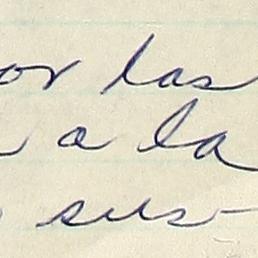 or las
a la
sus-